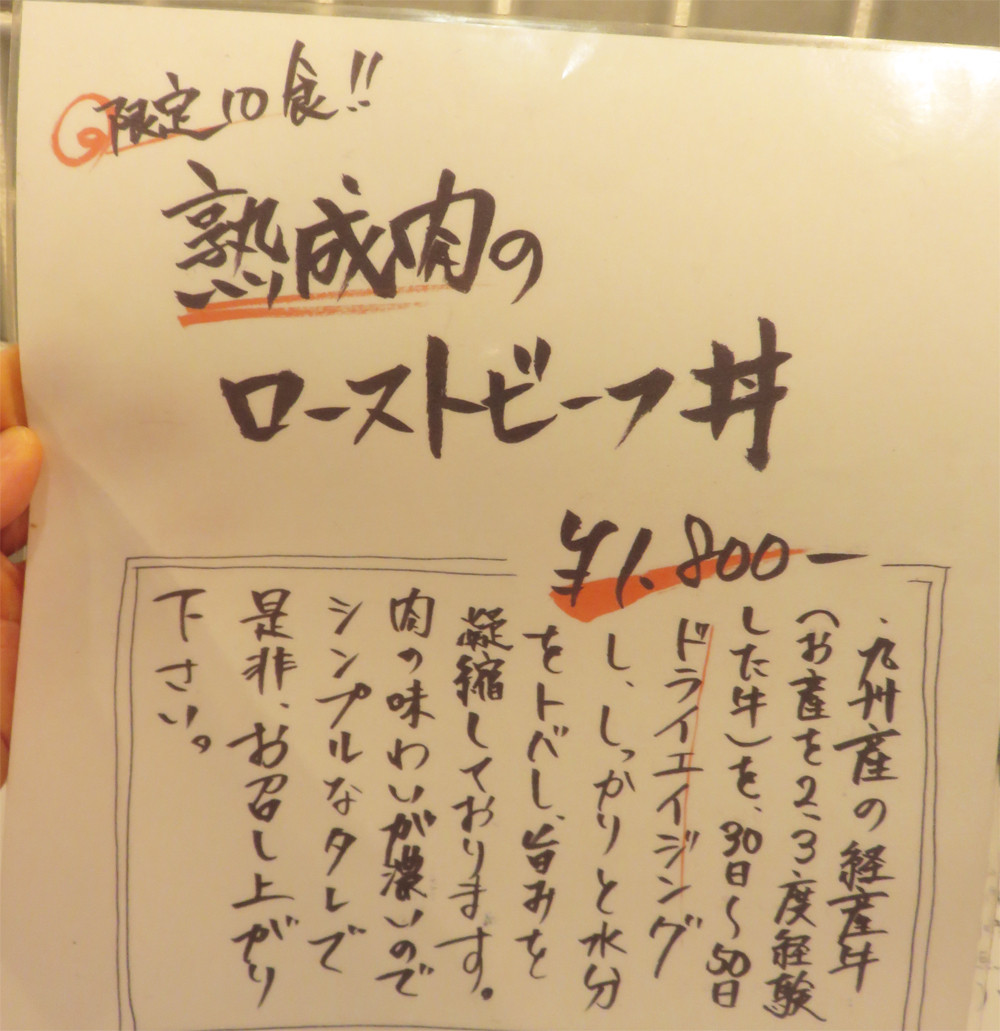 限定10食!!
熟成肉の
ローストビーフ丼
¥1.800ー
・九州産の経産牛
(お産を2、3度経験
した牛)を、30日〜50日
ドライエイジング
し、しっかりと水分
をトバし、旨みを
凝縮しております。
肉の味わいが濃いので
シンプルなタレで
是非、お召し上がり
下さい。